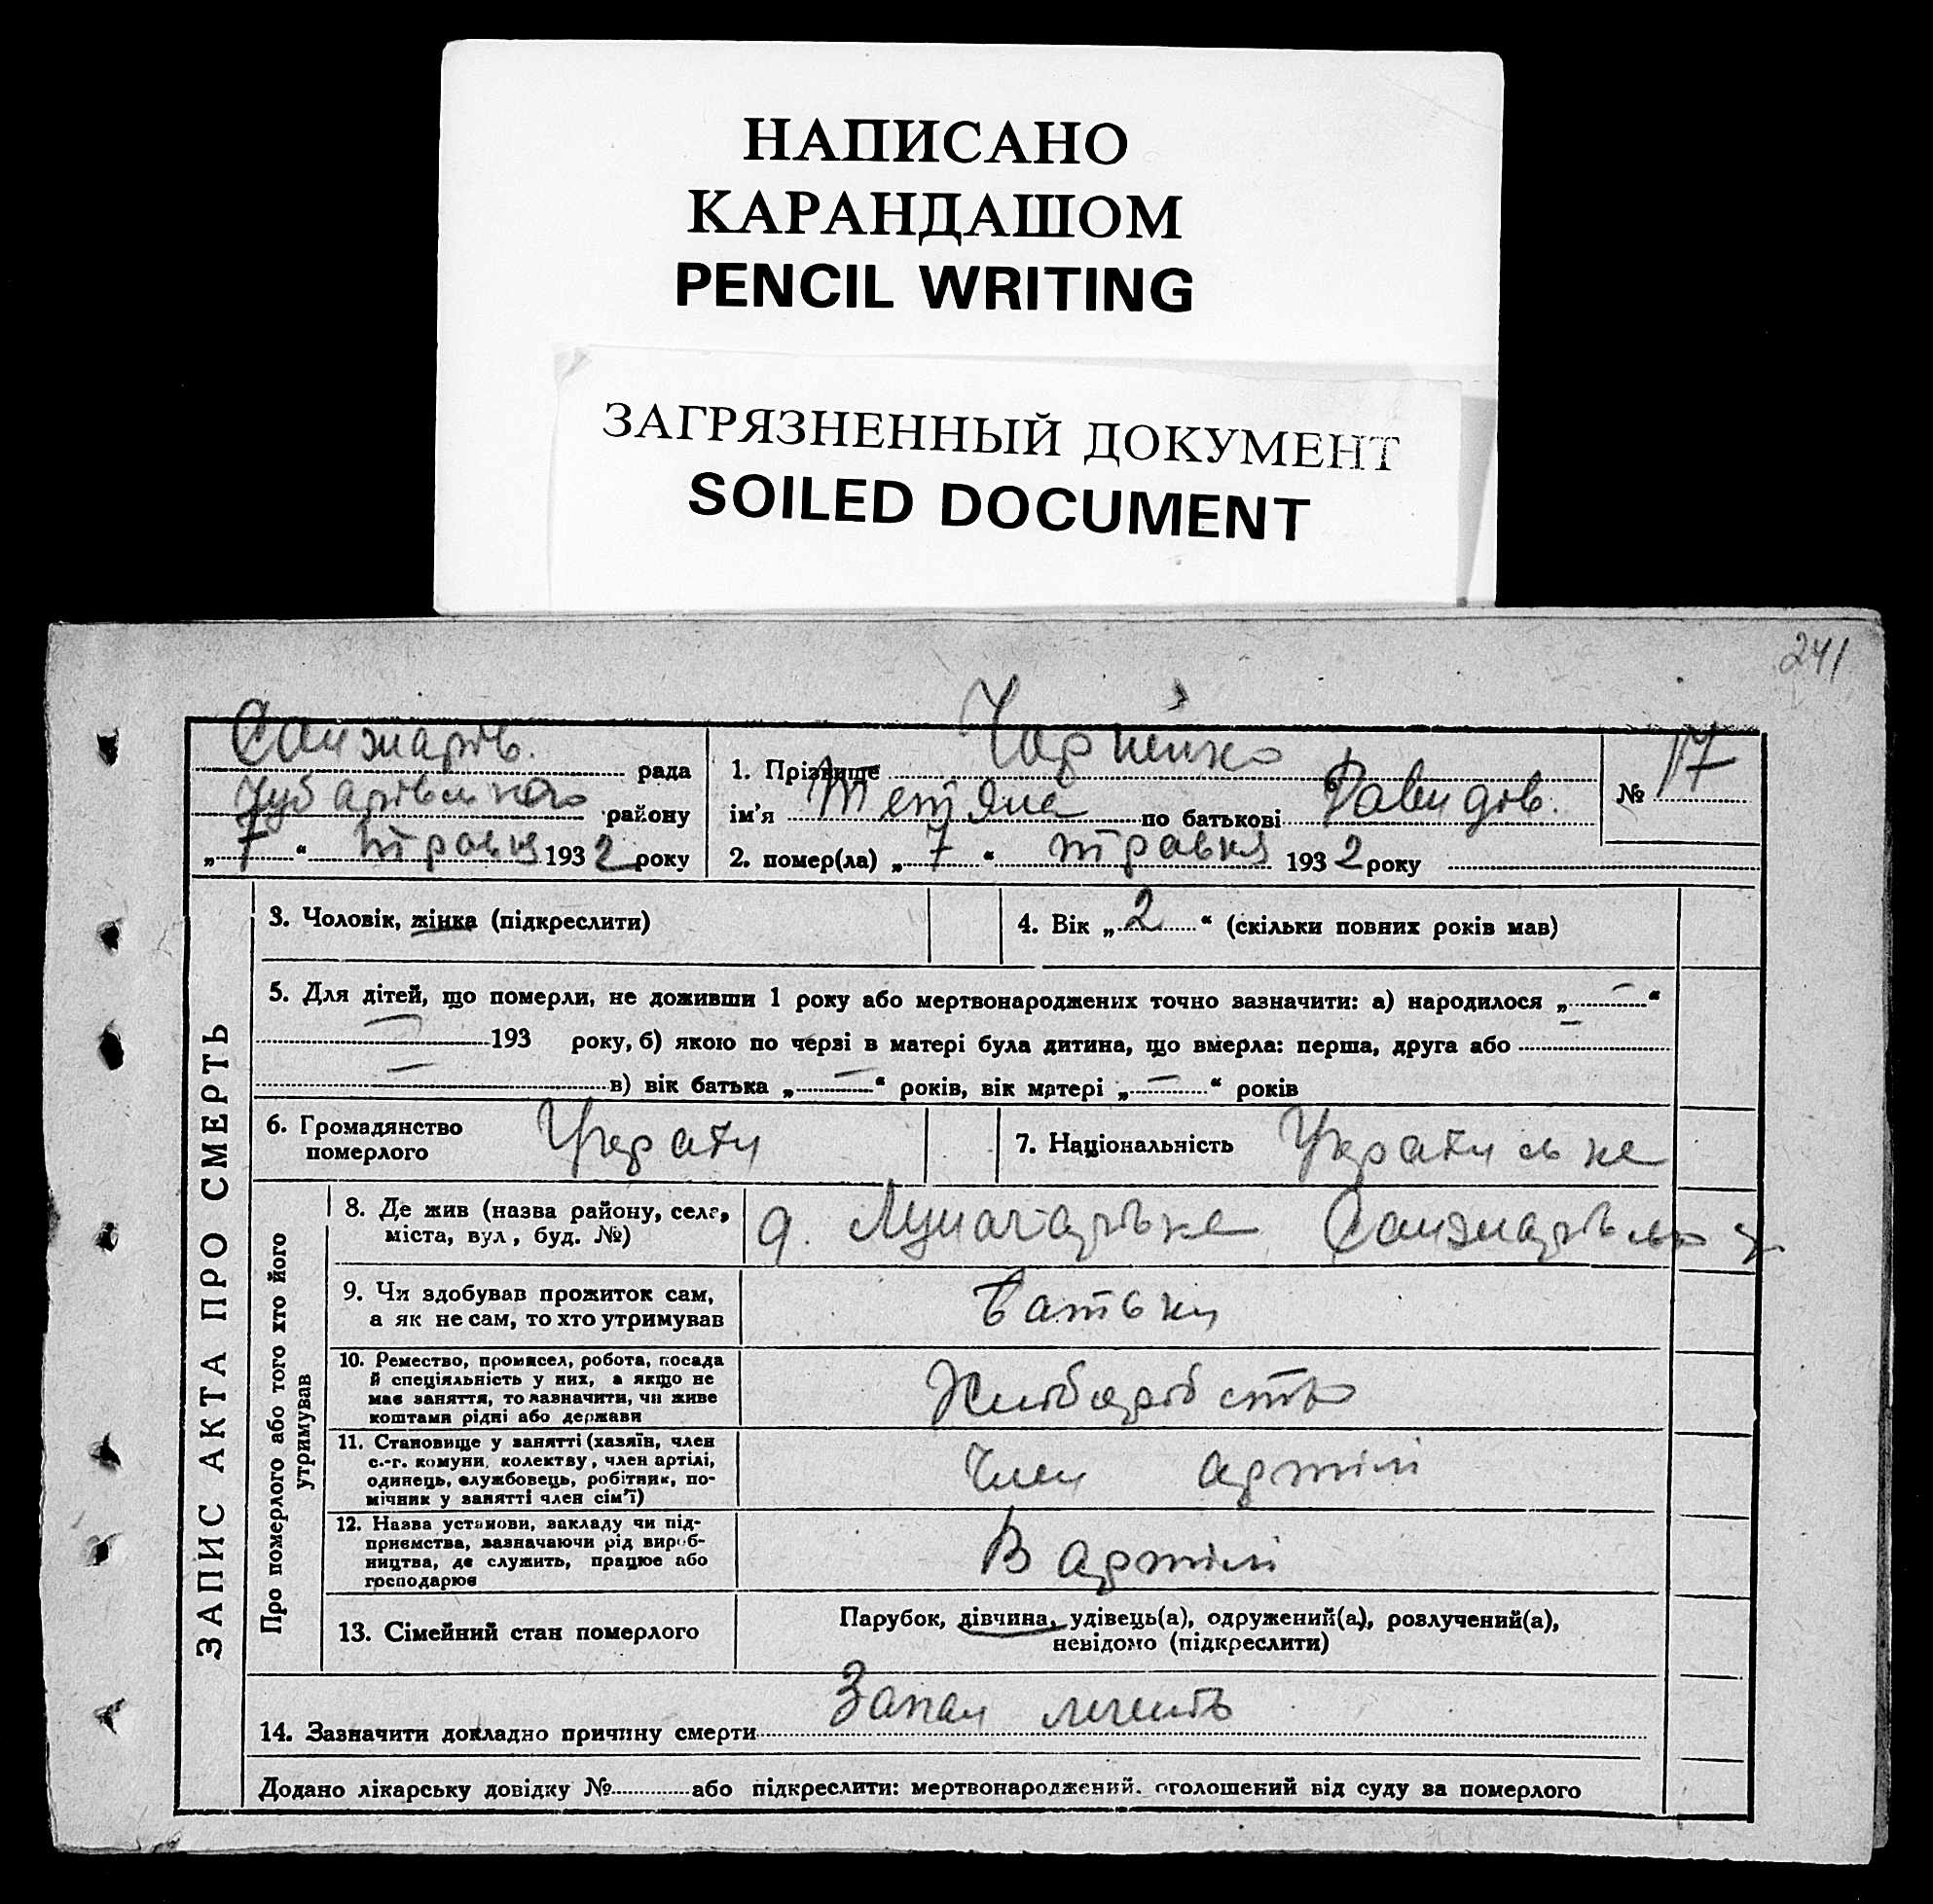 НАПИСАНО
КАРАНДАШОМ
PENCIL WRITING
ЗАГРЯЗНЕННЫЙ ДОКУМЕНТ
SOILED DOCUMENT
241
Санжарів. рада
Чубарівського району
„7“ травня 1932 року
1. Прізвище
ім'я Тетяна по батькові Давидів.
2. помер(ла) „7“ травня 1932 року
№ 17
ЗАПИС АКТА ПРО СМЕРТЬ
3. Чоловік, жінка (підкреслити)
4. Вік „2“ (скільки повних років мав)
5. Для дітей, що померли, не доживши 1 року або мертвонароджених точно зазначити: а) народилося „—“
— 193 року, б) якою по черзі в матері була дитина, що вмерла: перша, друга або —
— в) вік батька „—“ років, вік матері „—“ років
6. Громадянство
померлого
7. Національність
Про померлого або того хто його
утримував
8. Де жив (назва району, села,
міста, вул, буд. №)
9. Чи здобував прожиток сам,
а як не сам, то хто утримував
Батьки
10. Ремество, промисел, робота, посада
й спеціяльність у них, а якщо не
має заняття, то зазначити, чи живе
коштами рідні або держави
11. Становище у занятті (хазяїн, член
с.-г. комуни, колектву, член артілі,
одинець, службовець, робітник, по-
мічник у занятті член сім'ї)
Член артілі
12. Назва установи, закладу чи під-
приємства, зазначаючи рід вироб-
ництва, де служить, працює або
господарює
В артілі
13. Сімейний стан померлого
Парубок, дівчина, удівець(а), одружений(а), розлучений(а),
невідомо (підкреслити)
14. Зазначити докладно причину смерти Запал легенів
Додано лікарську довідку № або підкреслити: мертвонароджений. оголошений від суду за померлого